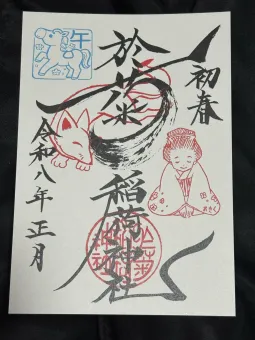 初春
於菊
稲荷神社
令和八年 正月
午
おきく